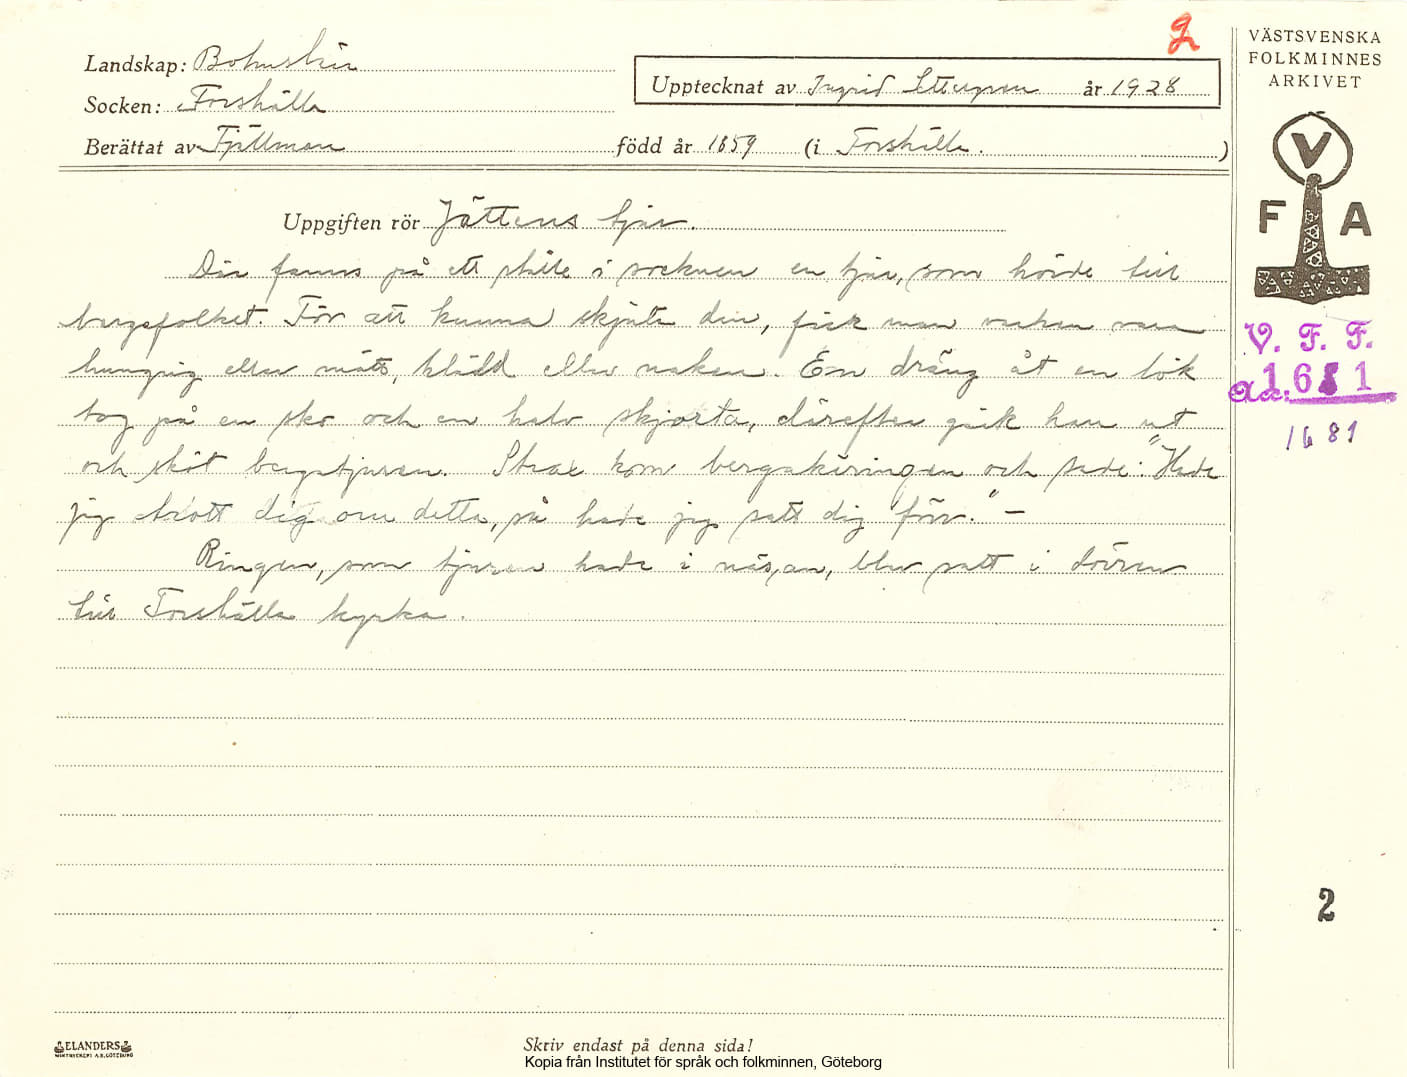 g
VÄSTSVENSKA
FOLKMINNES
ARKIVET
Landskap: Bohuslän
Upptecknat av Ingrid Settergren år 1928
Socken: Forshälla
Berättat av Fjällman född år 1859 (i Forshälla.)
V
F A
Uppgiften rör Jättens tjur.
Där fanns på ett ställe i socknen en tjur, som hörde till
bergsfolket. För att kunna skjuta den, fick man varken vara
hungrig eller mätt, klädd eller naken. En dräng åt en lök
tog på en sko och en halv skjorta, därefter gick han ut
och sköt bergstjuren. Strax kom bergakäringen och sade: "Hade
jag trott dig om detta, så hade jag satt dig förr." –
Ringen, som tjuren hade i näsan, blev satt i dörren
till Forshälla kyrka.
V. F. F.
1681
1681
2
ELANDERS
Skriv endast på denna sida!
Kopia från Institutet för språk och folkminnen, Göteborg